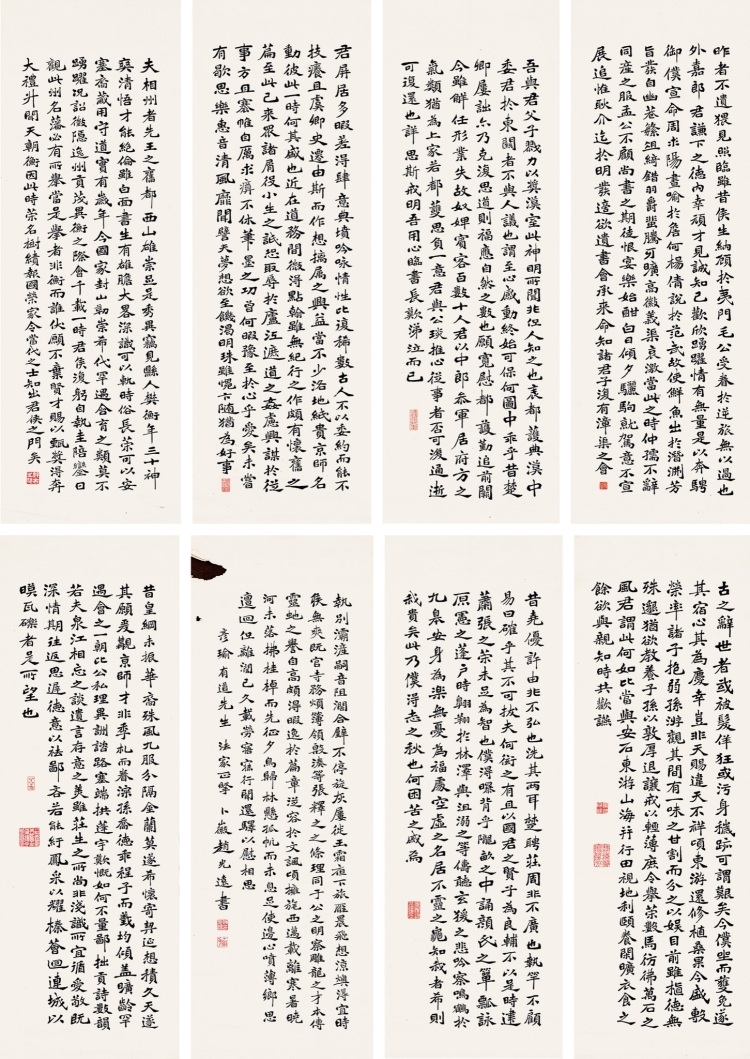 昨者不遺猥見照臨雖昔侯生納顧於夷門毛公受眷於逆旅無以過也
外嘉郎君謙下之德內幸頑才見誠知己歡欣踴躍情有無量是以奔騁
御僕宣命周求陽晝喻於詹何楊倩說於范武故使鮮魚出於潛淵芳
旨發自幽巷繁俎綺錯羽爵飛騰牙曠高徽義渠哀激當此之時仲孺不辭
同産之服孟公不顧尚書之期徒恨宴樂始酣白日傾夕驪駒就駕意不宣
展追惟耿介迄於明發適欲遺書會承來命知諸君子復有漳渠之會
吾與君父子戮力以獎漢室此神明所聞非但人知之也表都護典漢中
委君於東關者不與人議也謂至心感動終始可保何圖中乖乎昔楚
卿屢絀亦乃克復思道則福應自然之數也願寬慰都護勤追前闕
今雖解任形業失故奴婢賓客百數十人君以中郎參軍居府方之
氣類猶為上家若都護思負一意君與公琰推心從事者否可復通逝
可復還也詳思斯戒明吾用心臨書長歎涕泣而已
君屏居多暇差得肆意典墳吟咏情性比復稀數古人不以委約而能不
技癢且虞卿史遷由斯而作想摛屬之興益當不少洛地紙貴京師名
動彼此一時何其盛也近在道務閒微得點翰雖無紀行之作頗有懷舊之
篇至此已來眾諸屑役小生之誠恐取辱於廬江遮道之姦慮興謀於從
事方且褰帷自厲求瘼不休筆墨之功曾何暇豫至於心乎愛矣未嘗
有歇思樂惠音清風靡聞譬夫夢想欲至饑渴明珠雖愧卞隨猶為好事
夫相州者先王之舊都西山雄崇足是秀異竊見縣人樊衡年三十神
爽清悟才能絕倫雖白面書生有雄膽大略深識可以軌時俗長策可以安
塞裔藏用守道實有歲年今國家封山勒崇希代罕遇含育之類莫不
踴躍況詔徵隱逸州貢茂異衡之際會千載一時君侯復躬自執圭陪鑾日
觀此州名藩必有所舉當是舉者非衡而誰伏願不棄賢才賜以甄獎得奔
大禮升聞天朝衡因此時策名樹績報國榮家令當代之士知出君侯之門矣
古之辭世者或被髮佯狂或污身穢跡可謂艱矣今僕坐而獲免遂
其宿心其為慶幸豈非天賜違天不祥頃東游還修植桑果今盛敷
榮率諸子抱弱孫游觀其間有一味之甘割而分之以娛目前雖植德無
殊邈猶欲教養子孫以敦厚退讓戒以輕薄庶令舉策數馬彷彿萬石之
風君謂此何如比當與安石東游山海并行田視地利頤養閒曠衣食之
餘欲與親知時共歡讌
昔堯優許由非不弘也洗其兩耳楚聘莊周非不廣也執竿不顧
易曰確乎其不可拔夫何衒之有且以國君之賢子為良輔不以是時建
蕭張之策未足為智也僕得曝背乎隴畝之中誦顏氏之簞瓢詠
原憲之蓬戶時翱翔於林澤與沮溺之等儔聽玄猿之悲吟察鳴鶴於
九皋安身為樂無憂為福處空虛之名居不靈之龜知我者希則
我貴矣此乃僕得志之秋也何困苦之戚焉
執別灞滻嗣音阻闊合璧不停旋灰屢徙玉霜夜下旅雁晨飛想涼燠得宜時
候無爽既官寺務煩簿領殷湊等張釋之之條理同于公之明察雕龍之才本傳
靈蛇之譽自高頗得暇逸於篇章從容於文諷頃擁旄西邁載離寒暑曉
河未落拂桂棹而先征夕鳥歸林懸孤帆而未息足使邊心憤薄鄉思
邅迴但離闊已久載勞寤寐行聞還驛以慰相思
彦瑜有道先生 法家正擊 卜巌趙光遠書
昔皇綱未振華裔殊風九服分隔金蘭莫遂希懷寄契延想積久天遂
其願爰觀京師才非季札而眷深孫喬德乖程子而義均傾蓋曠齡罕
遇會之一朝比公私理異訓諧路塞端拱蓬宇歎慨如何不量鄙拙貢詩數韻
若夫泉江相忘之談遺言存意之美雖莊生之所尚非淺識所宜循愛敬既
深情期往返思遲德意以祛鄙吝若能紆鳳彩以耀榛薈迴連城以
瞑瓦礫者是所望也